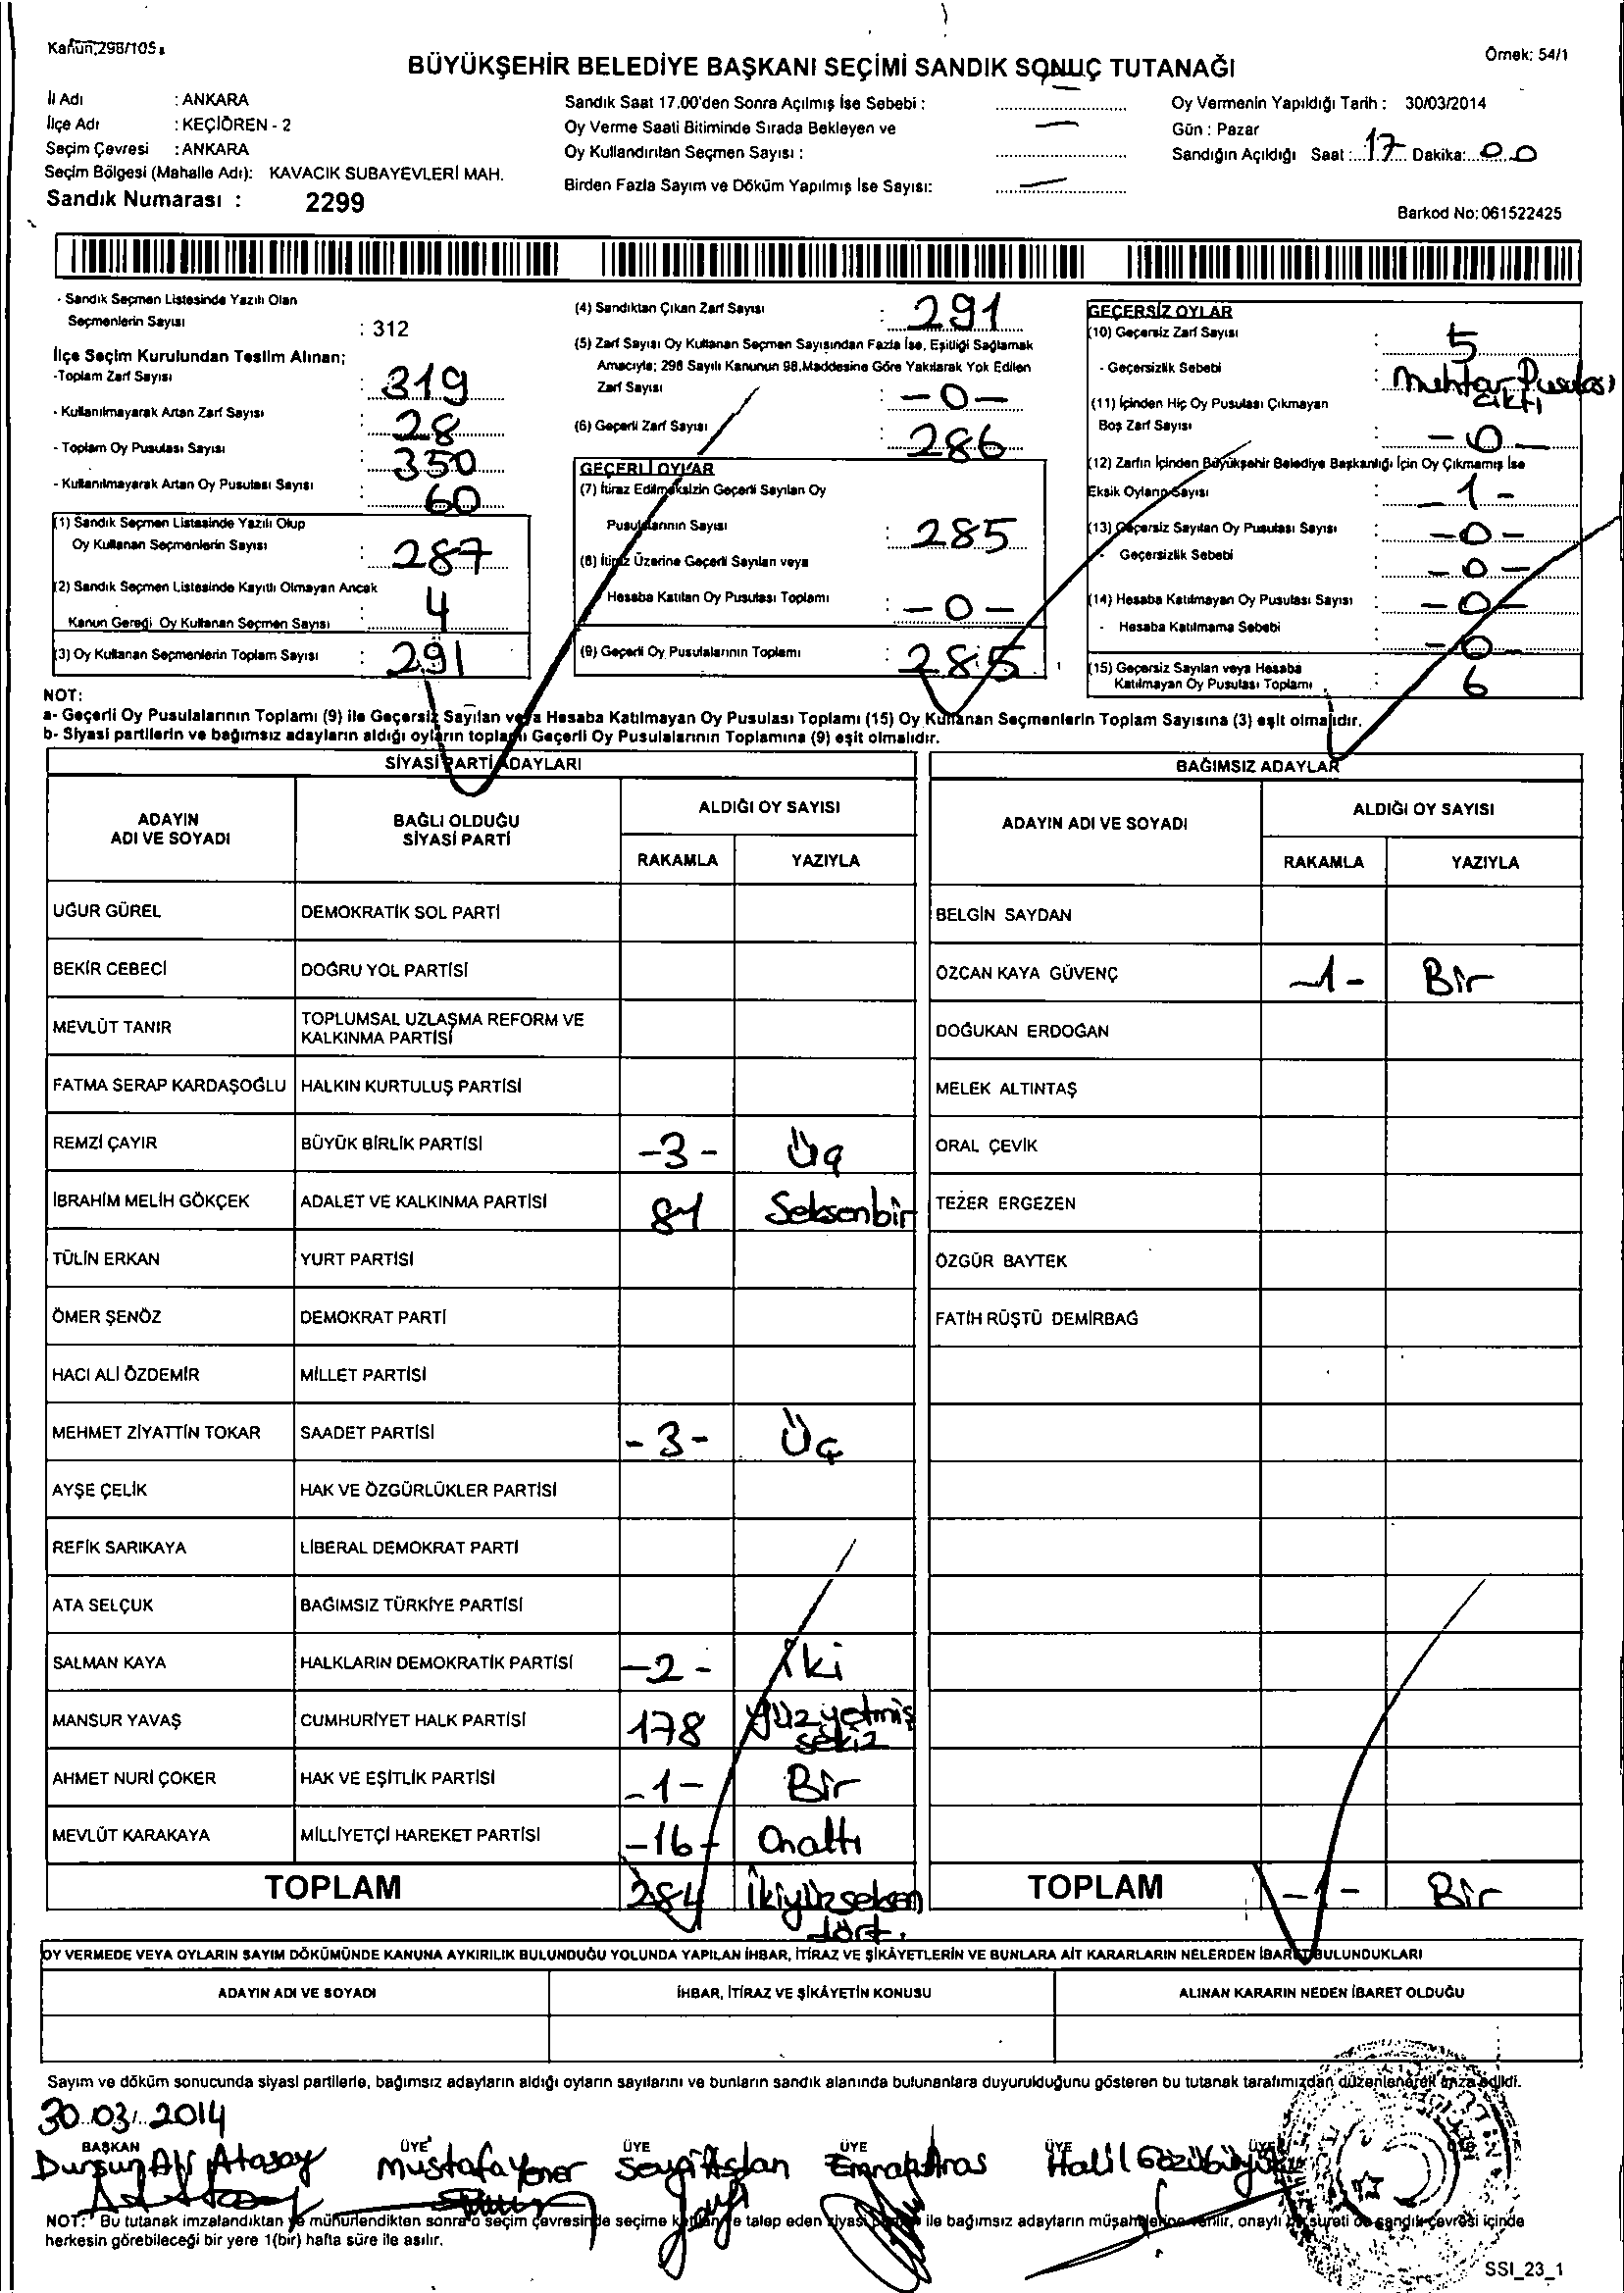 Kanun;298/105
Örnek: 54/1
BÜYÜKŞEHİR BELEDİYE BAŞKANI SEÇİMİ SANDIK SONUÇ TUTANAĞI
İl Adı : ANKARA
İlçe Adı : KEÇİÖREN - 2
Seçim Çevresi : ANKARA
Seçim Bölgesi (Mahalle Adı): KAVACIK SUBAYEVLERİ MAH.
Sandık Numarası : 2299
Sandık Saat 17.00'den Sonra Açılmış İse Sebebi :
Oy Verme Saati Bitiminde Sırada Bekleyen ve
Oy Kullandırılan Seçmen Sayısı : —
Birden Fazla Sayım ve Döküm Yapılmış İse Sayısı: —
Oy Vermenin Yapıldığı Tarih : 30/03/2014
Gün : Pazar
Sandığın Açıldığı Saat : 17 Dakika: 00
Barkod No: 061522425
- Sandık Seçmen Listesinde Yazılı Olan
Seçmenlerin Sayısı : 312
İlçe Seçim Kurulundan Teslim Alınan;
-Toplam Zarf Sayısı : 319
- Kullanılmayarak Artan Zarf Sayısı : 28
- Toplam Oy Pusulası Sayısı : 350
- Kullanılmayarak Artan Oy Pusulası Sayısı : 60
(1) Sandık Seçmen Listesinde Yazılı Olup
Oy Kullanan Seçmenlerin Sayısı : 287
(2) Sandık Seçmen Listesinde Kayıtlı Olmayan Ancak
Kanun Gereği Oy Kullanan Seçmen Sayısı : 4
(3) Oy Kullanan Seçmenlerin Toplam Sayısı : 291
(4) Sandıktan Çıkan Zarf Sayısı : 291
(5) Zarf Sayısı Oy Kullanan Seçmen Sayısından Fazla İse, Eşitliği Sağlamak
Amacıyla; 298 Sayılı Kanunun 98.Maddesine Göre Yakılarak Yok Edilen
Zarf Sayısı : -0-
(6) Geçerli Zarf Sayısı : 286
GEÇERLİ OYLAR
(7) İtiraz Edilmeksizin Geçerli Sayılan Oy
Pusulalarının Sayısı : 285
(8) İtiraz Üzerine Geçerli Sayılan veya
Hesaba Katılan Oy Pusulası Toplamı : -0-
(9) Geçerli Oy Pusulalarının Toplamı : 285
GEÇERSİZ OYLAR
(10) Geçersiz Zarf Sayısı : 5
- Geçersizlik Sebebi : Muhtar Pusulası
çıktı
(11) İçinden Hiç Oy Pusulası Çıkmayan
Boş Zarf Sayısı : -0-
(12) Zarfın İçinden Büyükşehir Belediye Başkanlığı İçin Oy Çıkmamış İse
Eksik Oyların Sayısı : -1-
(13) Geçersiz Sayılan Oy Pusulası Sayısı : -0-
- Geçersizlik Sebebi -0-
(14) Hesaba Katılmayan Oy Pusulası Sayısı : -0-
- Hesaba Katılmama Sebebi -0-
(15) Geçersiz Sayılan veya Hesaba
Katılmayan Oy Pusulası Toplamı : 6
NOT:
a- Geçerli Oy Pusulalarının Toplamı (9) ile Geçersiz Sayılan veya Hesaba Katılmayan Oy Pusulası Toplamı (15) Oy Kullanan Seçmenlerin Toplam Sayısına (3) eşit olmalıdır.
b- Siyasi partilerin ve bağımsız adayların aldığı oyların toplamı Geçerli Oy Pusulalarının Toplamına (9) eşit olmalıdır.
SİYASİ PARTİ ADAYLARI
ADAYIN ADI VE SOYADI
BAĞLI OLDUĞU SİYASİ PARTİ
ALDIĞI OY SAYISI
RAKAMLA YAZIYLA
UĞUR GÜREL DEMOKRATİK SOL PARTİ
BEKİR CEBECİ DOĞRU YOL PARTİSİ
MEVLÜT TANIR TOPLUMSAL UZLAŞMA REFORM VE
KALKINMA PARTİSİ
FATMA SERAP KARDAŞOĞLU HALKIN KURTULUŞ PARTİSİ
REMZİ ÇAYIR BÜYÜK BİRLİK PARTİSİ -3- Üç
İBRAHİM MELİH GÖKÇEK ADALET VE KALKINMA PARTİSİ 81 Seksenbir
TÜLİN ERKAN YURT PARTİSİ
ÖMER ŞENÖZ DEMOKRAT PARTİ
HACI ALİ ÖZDEMİR MİLLET PARTİSİ
MEHMET ZİYATTİN TOKAR SAADET PARTİSİ -3- Üç
AYŞE ÇELİK HAK VE ÖZGÜRLÜKLER PARTİSİ
REFİK SARIKAYA LİBERAL DEMOKRAT PARTİ
ATA SELÇUK BAĞIMSIZ TÜRKİYE PARTİSİ
SALMAN KAYA HALKLARIN DEMOKRATİK PARTİSİ -2- İki
MANSUR YAVAŞ CUMHURİYET HALK PARTİSİ 178 Yüzyetmiş
sekiz
AHMET NURİ ÇOKER HAK VE EŞİTLİK PARTİSİ -1- Bir
MEVLÜT KARAKAYA MİLLİYETÇİ HAREKET PARTİSİ -16- Onaltı
TOPLAM 284 İkiyüzseksen
dört.
BAĞIMSIZ ADAYLAR
ADAYIN ADI VE SOYADI
ALDIĞI OY SAYISI
RAKAMLA YAZIYLA
BELGİN SAYDAN
ÖZCAN KAYA GÜVENÇ -1- Bir
DOĞUKAN ERDOĞAN
MELEK ALTINTAŞ
ORAL ÇEVİK
TEZER ERGEZEN
ÖZGÜR BAYTEK
FATİH RÜŞTÜ DEMİRBAĞ
TOPLAM -1- Bir
OY VERMEDE VEYA OYLARIN SAYIM DÖKÜMÜNDE KANUNA AYKIRILIK BULUNDUĞU YOLUNDA YAPILAN İHBAR, İTİRAZ VE ŞİKÂYETLERİN VE BUNLARA AİT KARARLARIN NELERDEN İBARET BULUNDUKLARI
ADAYIN ADI VE SOYADI İHBAR, İTİRAZ VE ŞİKÂYETİN KONUSU ALINAN KARARIN NEDEN İBARET OLDUĞU
Sayım ve döküm sonucunda siyasi partilerle, bağımsız adayların aldığı oyların sayılarını ve bunların sandık alanında bulunanlara duyurulduğunu gösteren bu tutanak tarafımızdan düzenlenerek imza edildi.
30.03.2014
BAŞKAN ÜYE ÜYE ÜYE ÜYE ÜYE
Dursun Ali Atasoy Mustafa Yener Sevgi Aslan Emrah Aras Halil Gözübüyük
NOT: Bu tutanak imzalandıktan ve mühürlendikten sonra o seçim çevresinde seçime katılan ve talep eden siyasi parti ile bağımsız adayların müşahitlerine verilir, onaylı bir sureti de sandık çevresi içinde
herkesin görebileceği bir yere 1(bir) hafta süre ile asılır.
SSI_23_1